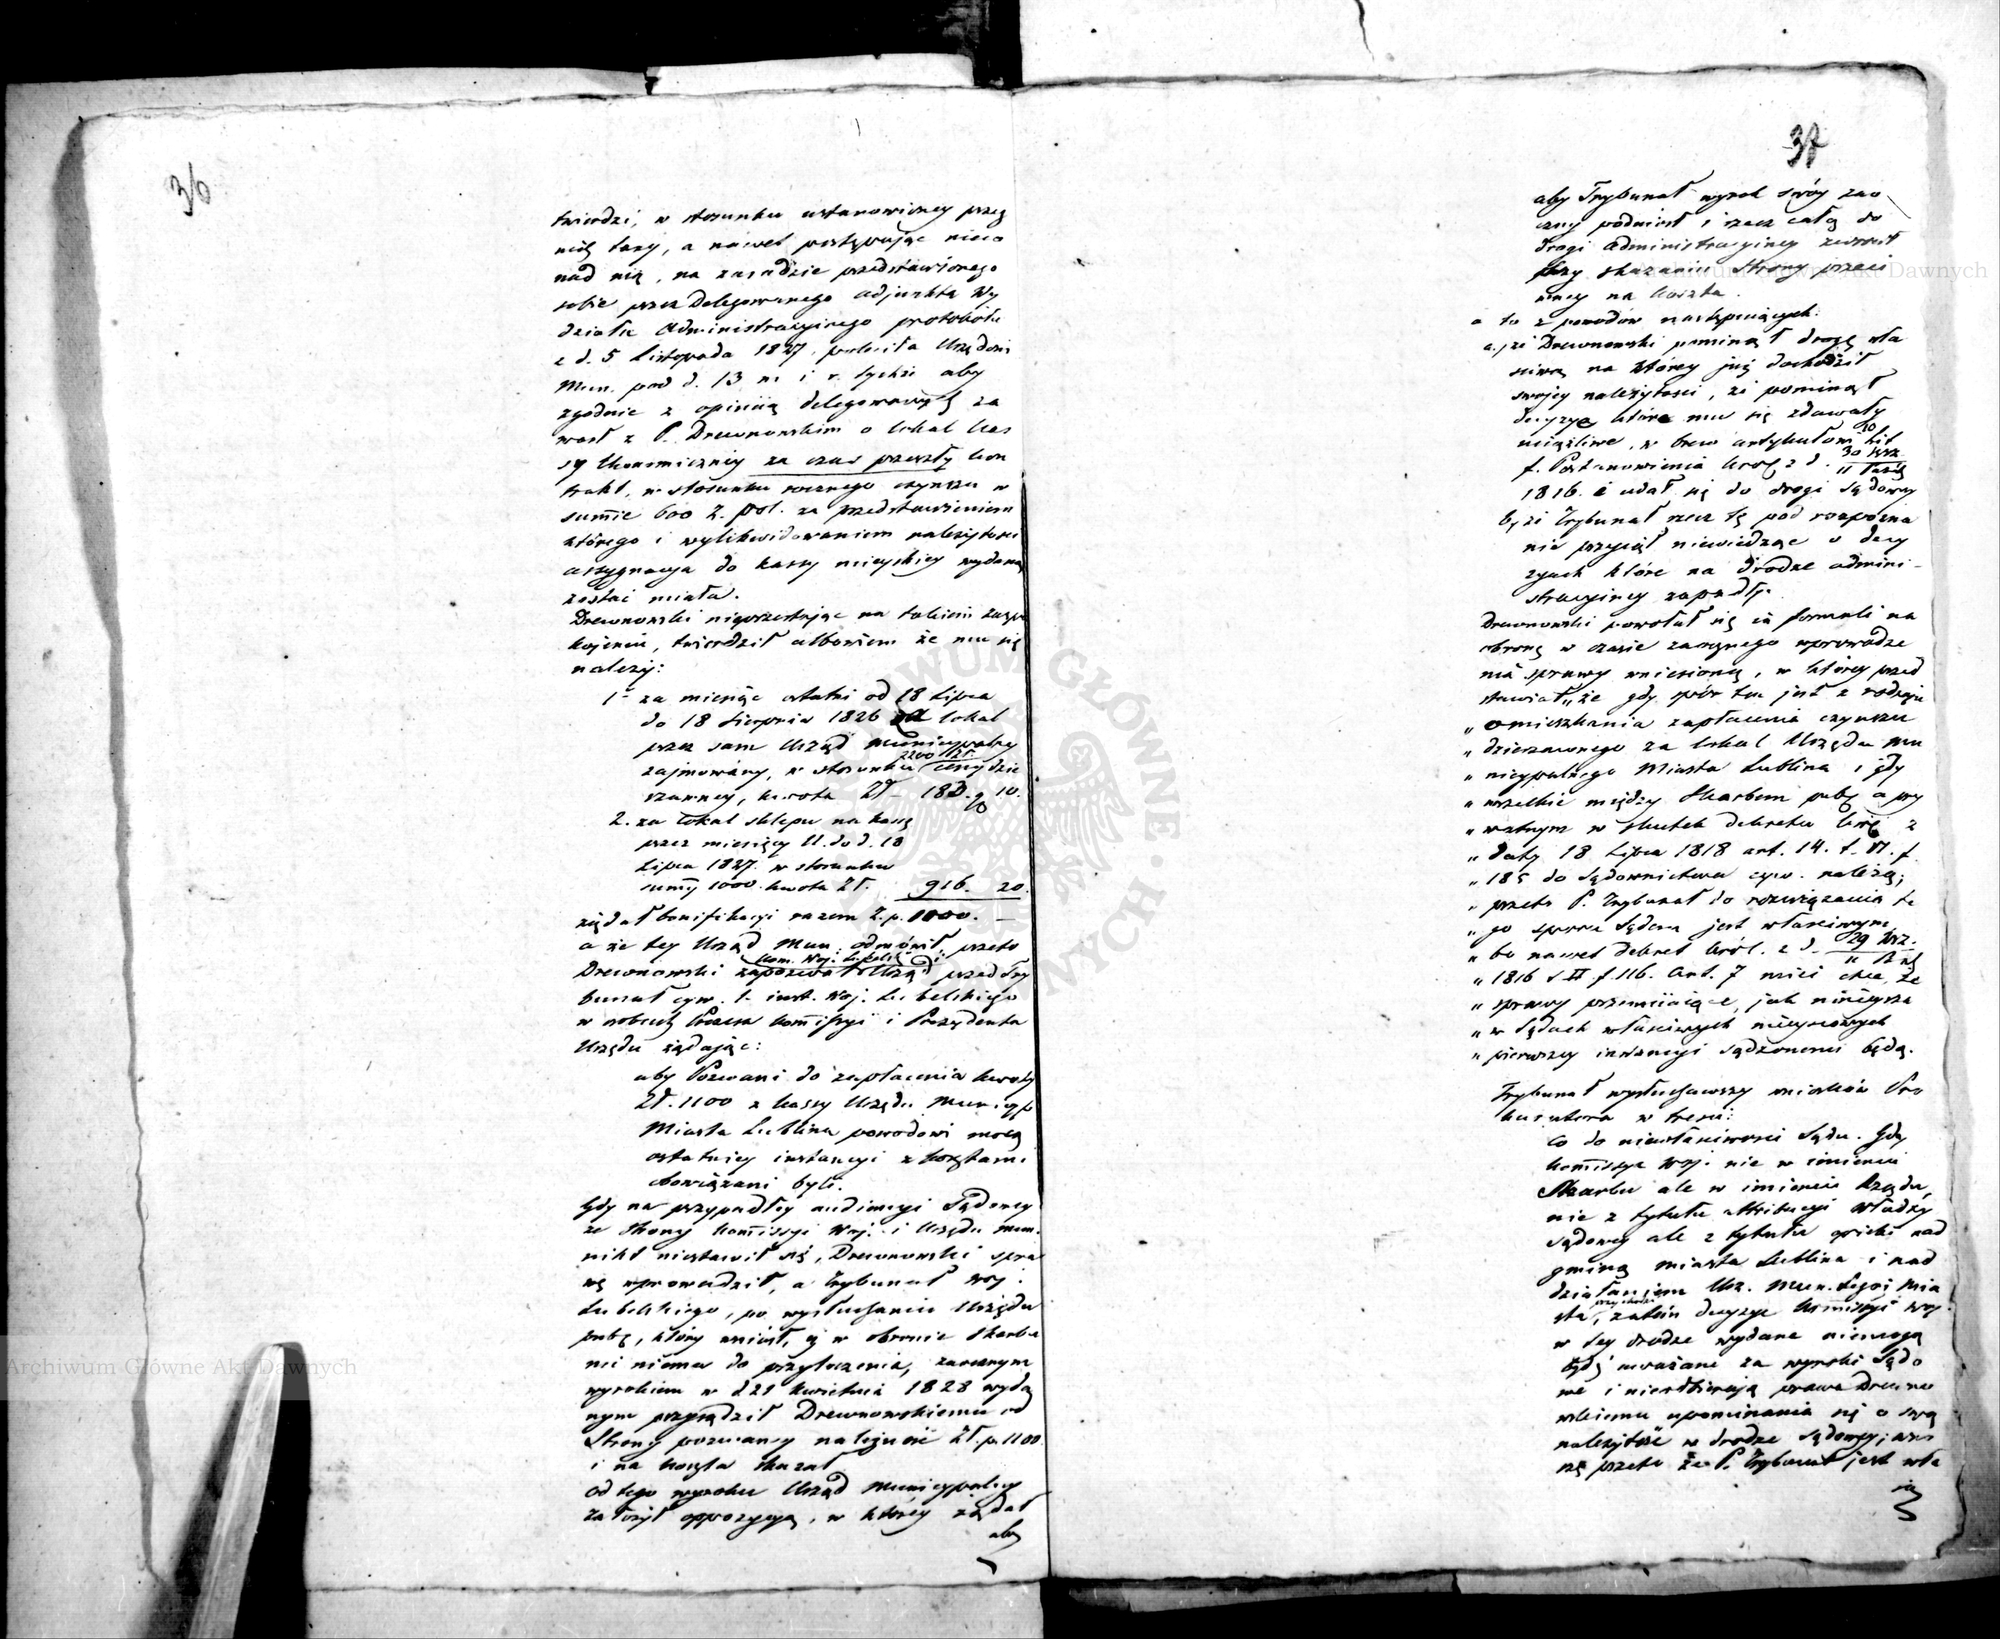 36
twierdzi, w stosunku ustanowioney przez
nię taxy, a nawet postępując nieco
nad nią, na zasadzie przedstawionego
sobie przez Delegowanego Adjunkta Wy
działu Administracyjnego protokółu
z d. 5 Listopada 1827. poleciła Urzędowi
Mun. pod d. 13 m. i r. tychże aby
zgodnie z opiniią delegowanego za
warł z P. Drewnowskim o lokal kas
sy Ekonomiczney za czas przeszły kon
trakt, w stosunku rocznego czynszu w
summie 600 Z. pol. za przedstawieniem
którego i wylikwidowaniem należytości
assygnacja do kassy mieyskiey wydaną
zostać miała.
Drewnowski nieprzestając na takiem zaspo
kojeniu, twierdził albowiem że mu się
należy:
1° za miesiąc ostatni od 18 Lipca
do 18 Sierpnia 1826 za lokal
przez sam Urząd Municypalny
zajmowany, w stosunku 2200 zł. ceny dzie
rzawney, kwota Zł – 183. g 10.
2. za lokal sklepu na kassę
przez miesięcy 11. do d. 18
Lipca 1827. w stosunku
summy 1000. kwota Zł. 916. 20.
żądał bonifikacyi razem Z. p. 1100. —
a że tey Urząd Mun. odmówił, przeto
Drewnowski zapozwał Kom. Woj. Lubelską i Urząd przed Try
bunał cyw. I. inst. Woj. Lubelskiego
w osobach Prezesa Kommissyi i Prezydenta
Urzędu żądając:
aby Pozwani do zapłacenia kwoty
Zł. 1100 z kassy Urzędu Municyp.
Miasta Lublina powodowi mocą
ostatniey instancyi z kosztami
obowiązani byli.
Gdy na przypadłey audiencyi Sądowey
ze strony Kommissyi Woj. i Urzędu Mun.
nikt niestawił się, Drewnowski spra
wę wprowadził, a Trybunał Woj.
Lubelskiego, po wysłuchaniu Urzędu
publ., który wniósł, iż w obronie Skarbu
nic niema do przytoczenia, zaocznym
wyrokiem w d 21 Kwietnia 1828 wyda
nym przysądził Drewnowskiemu od
Strony pozwaney należność Zł. p. 1100.
i na koszta skazał
Od tego wyroku Urząd Municypalny
założył oppozycyą, w którey żądał
aby
37
aby Trybunał wyrok swóy zao
czny podniósł i rzecz całą do
drogi administracyiney zwrócił
przy skazaniu Strony przeci
wney na koszta.
a to z powodów następujących:
a., że Drewnowski pominął drogę wła
ściwą na którey już dochodził
swojey należytości, że pominął
decyzye które mu się zdawały
uciążliwe, w brew artykułom 10 hit
f. Postanowienia król. z d. 30 Wrz. 11 Paźd.
1816. i udał się do drogi Sądowey
b., że Trybunał rzecz tę pod rozpozna
nie przyjął niewiedząc o decy
zyach które na drodze admini-
stracyiney zapadły.
Drewnowski powołał się na formalną
obronę w czasie zaocznego wprowadze
nia sprawy wniesioną, w którey przed
stawiał „że gdy spór ten jest z rodzaju
„ omieszkania zapłacenia czynszu
„ dzierzawnego za lokal Urzędu Mu
„ nicypalnego Miasta Lublina i gdy
„ wszelkie między Skarbem publ. a pry
„ watnym w skutek dekretu król. z
„ daty 18 Lipca 1818 art. 14. t. VI. f.
„ 185 do Sądownictwa cyw. należą;
„ przeto P. Trybunał do rozwiązania te
„ go sporu Sądem jest właściwym,
„ bo nawet dekret król. z d. 29 Wrz. 11 Paź
„ 1816 t II. f. 116. Art. 7 mieć chce, że
„ sprawy przemijające, jak ninieysza
„ w Sądach właściwych mieyscowych
„ pierwszey instancyi sądzonemi będą.
Trybunał wysłuchawszy wniosków Pro
kuratora w treści:
Co do niewłaściwości Sądu. Gdy
Kommissya Woj. nie w imieniu
Skarbu ale w imieniu Rządu,
nie z tytułu attribucyi władzy
sądowey ale z tytułu opieki nad
gminą miasta Lublina i nad
działaniem Urz. Mun. tegoż Mia
sta, przychodzi zatém decyzye Kommissyi Woj.
w tey drodze wydane niemogą
być uważane za wyroki Sądo
we i nieodbierają prawa Drewno
wskiemu upominania się o swą
należytość w drodze sądowey; wno
szę przeto że P. Trybunał jest wła